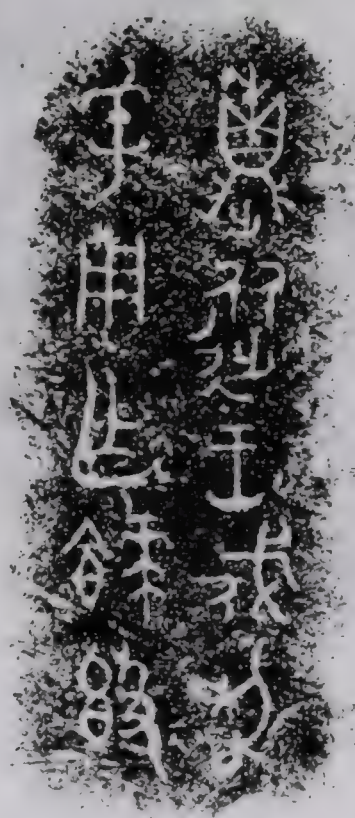 從王伐荊
孚用作餴簋